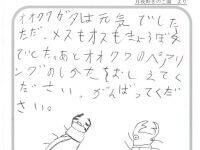 月夜野きのこ園 より
オオクワガタは元気でした。
ただ、メスもオスもきょうぼう
でした。あとオオクワのペアリ
ングのしかたをおしえてく
ださい。がんばってくだ
さい。